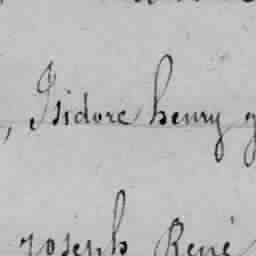 , Isidore henry
joseph René